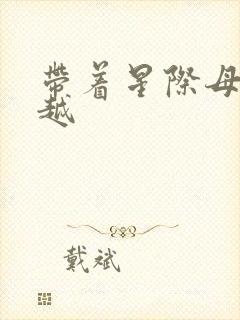 帶着星際母
越
戴斌